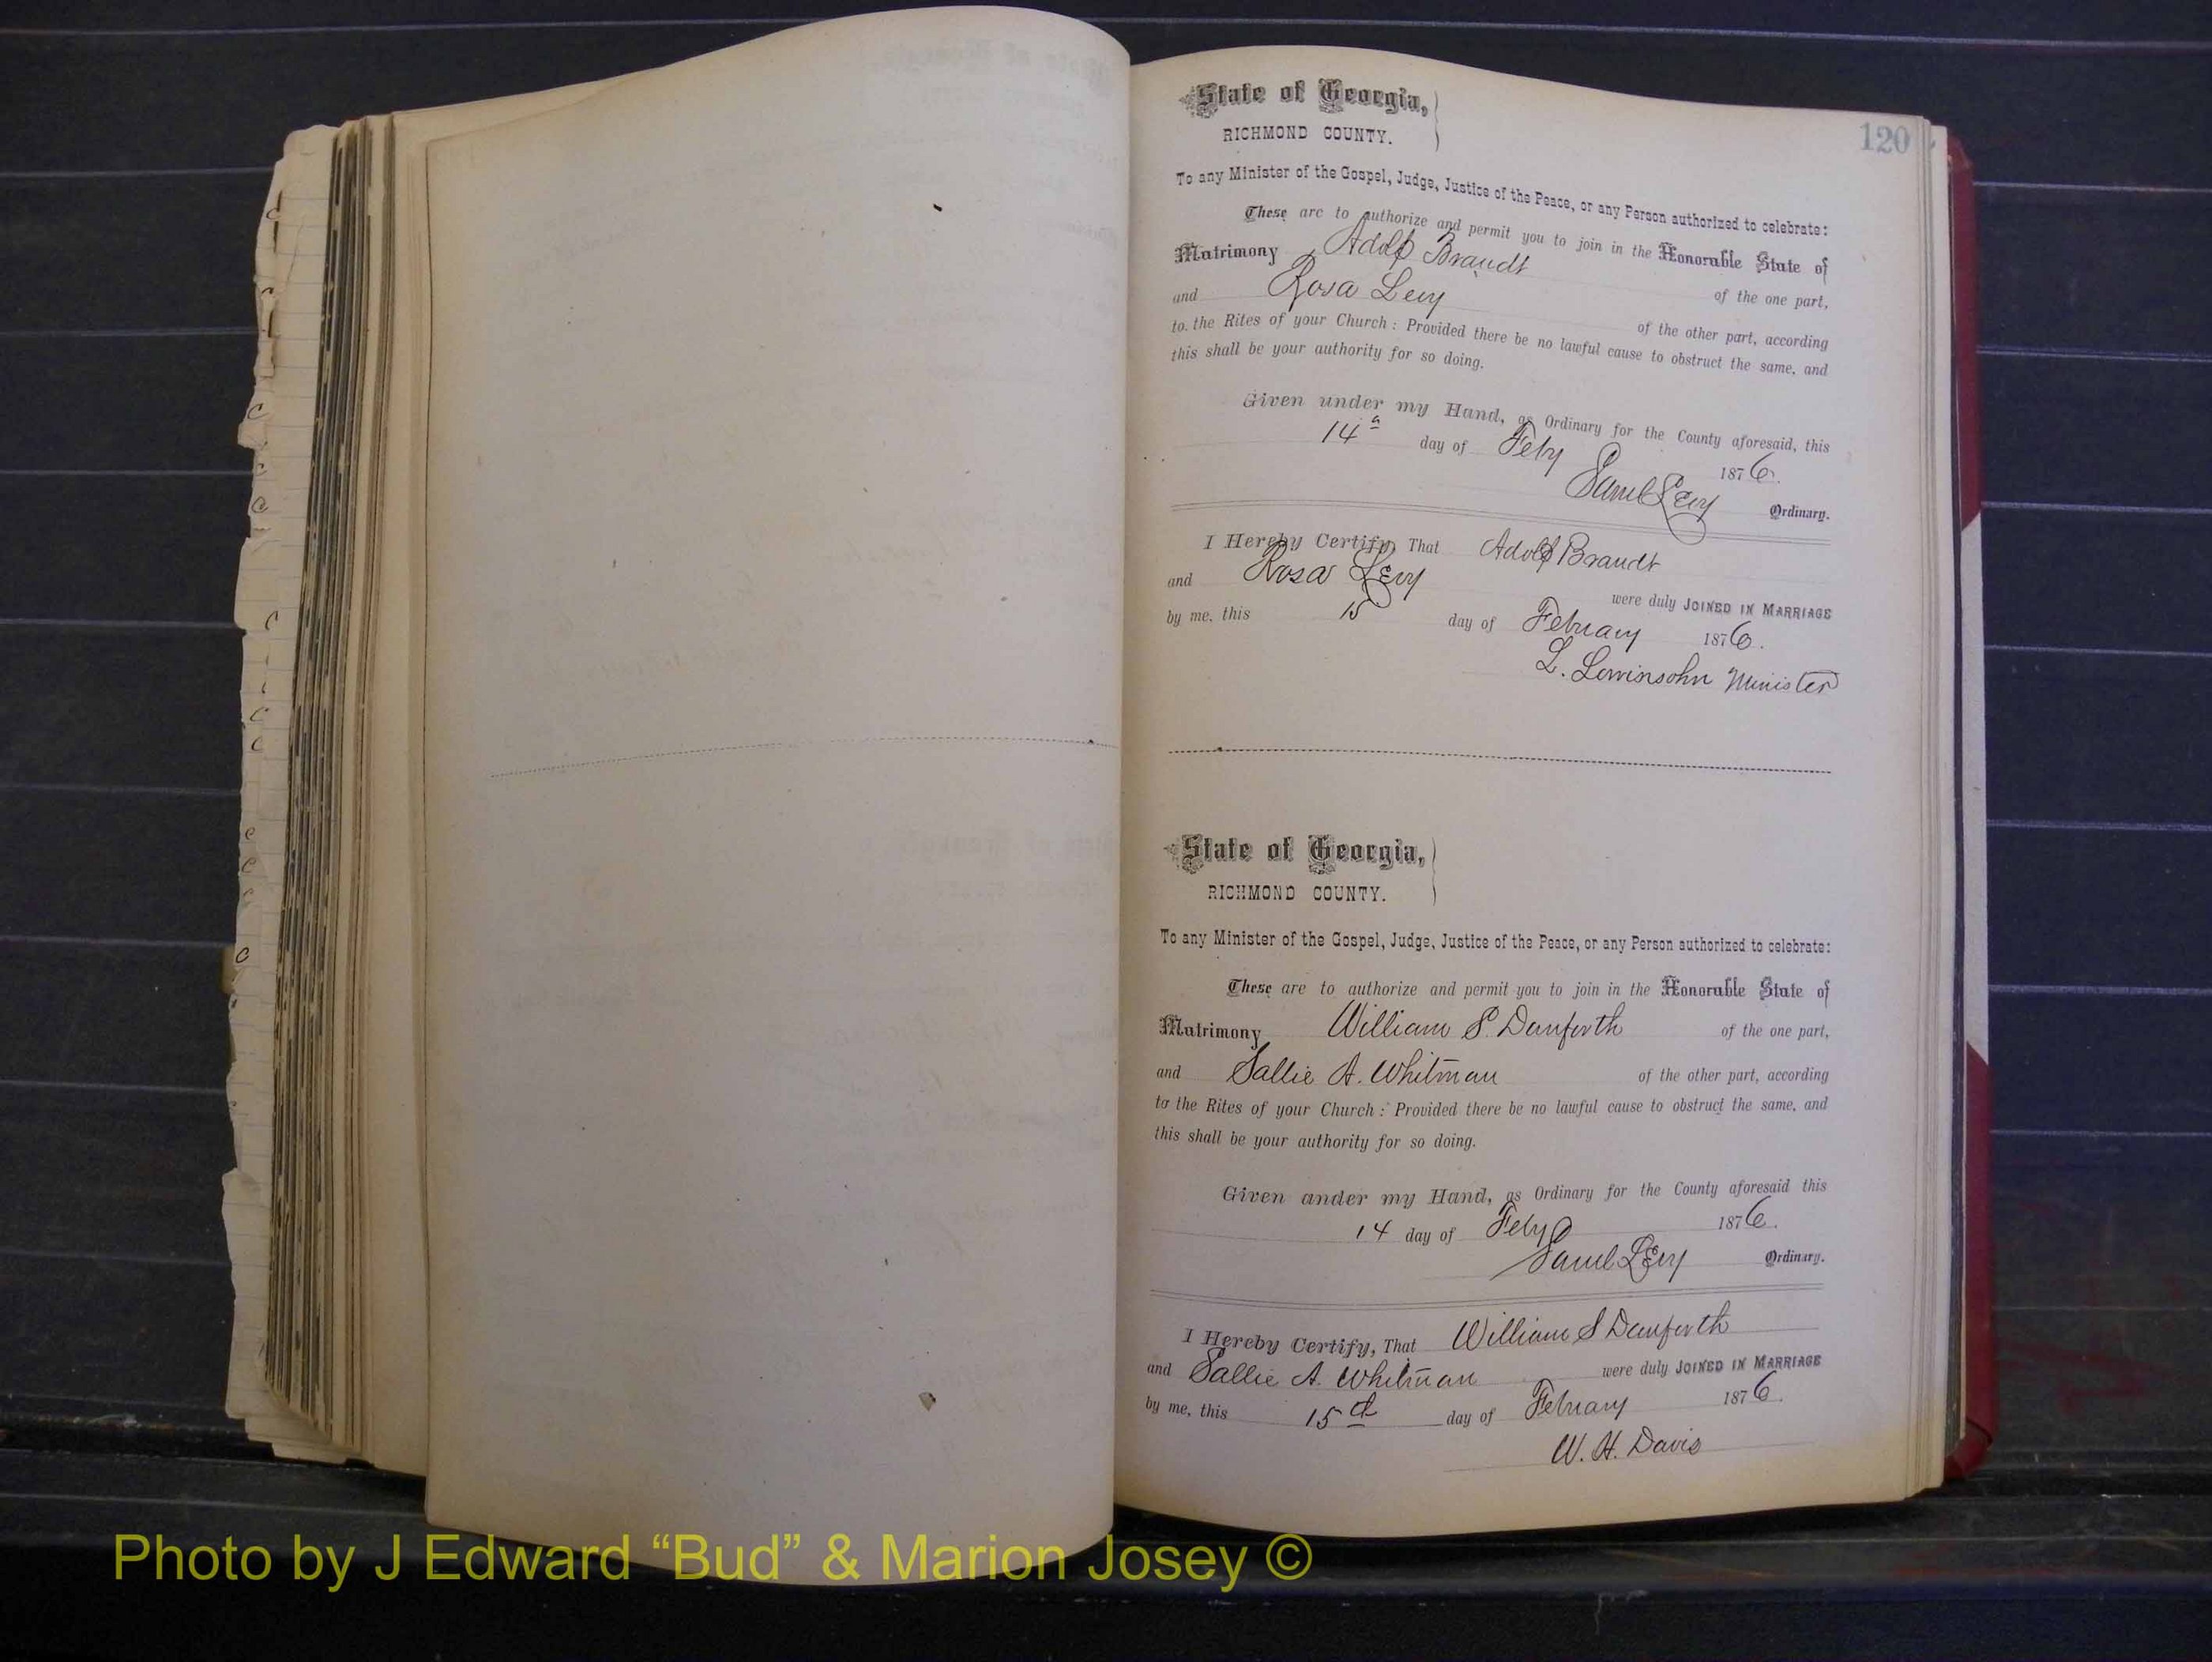 120
State of Georgia,
RICHMOND COUNTY.
To any Minister of the Gospel, Judge, Justice of the Peace, or any Person authorized to celebrate:
These are to authorize and permit you to join in the Honorable State of
Matrimony Adolf Brandt of the one part,
and Rosa Levy of the other part, according
to the Rites of your Church: Provided there be no lawful cause to obstruct the same, and
this shall be your authority for so doing.
Given under my Hand, as Ordinary for the County aforesaid, this
14 day of Feby 1876.
Saml Levy Ordinary.
I Hereby Certify, That Adolf Brandt
and Rosa Levy were duly JOINED IN MARRIAGE
by me, this 15 day of February 1876.
L. Lowinsohn Minister
State of Georgia,
RICHMOND COUNTY.
To any Minister of the Gospel, Judge, Justice of the Peace, or any Person authorized to celebrate:
These are to authorize and permit you to join in the Honorable State of
Matrimony William S. Danforth of the one part,
and Sallie A. Whitman of the other part, according
to the Rites of your Church: Provided there be no lawful cause to obstruct the same, and
this shall be your authority for so doing.
Given under my Hand, as Ordinary for the County aforesaid this
14 day of Feby 1876.
Saml Levy Ordinary.
I Hereby Certify, That William S Danforth
and Sallie A. Whitman were duly JOINED IN MARRIAGE
by me, this 15th day of February 1876.
W. H. Davis
Photo by J Edward “Bud” & Marion Josey ©